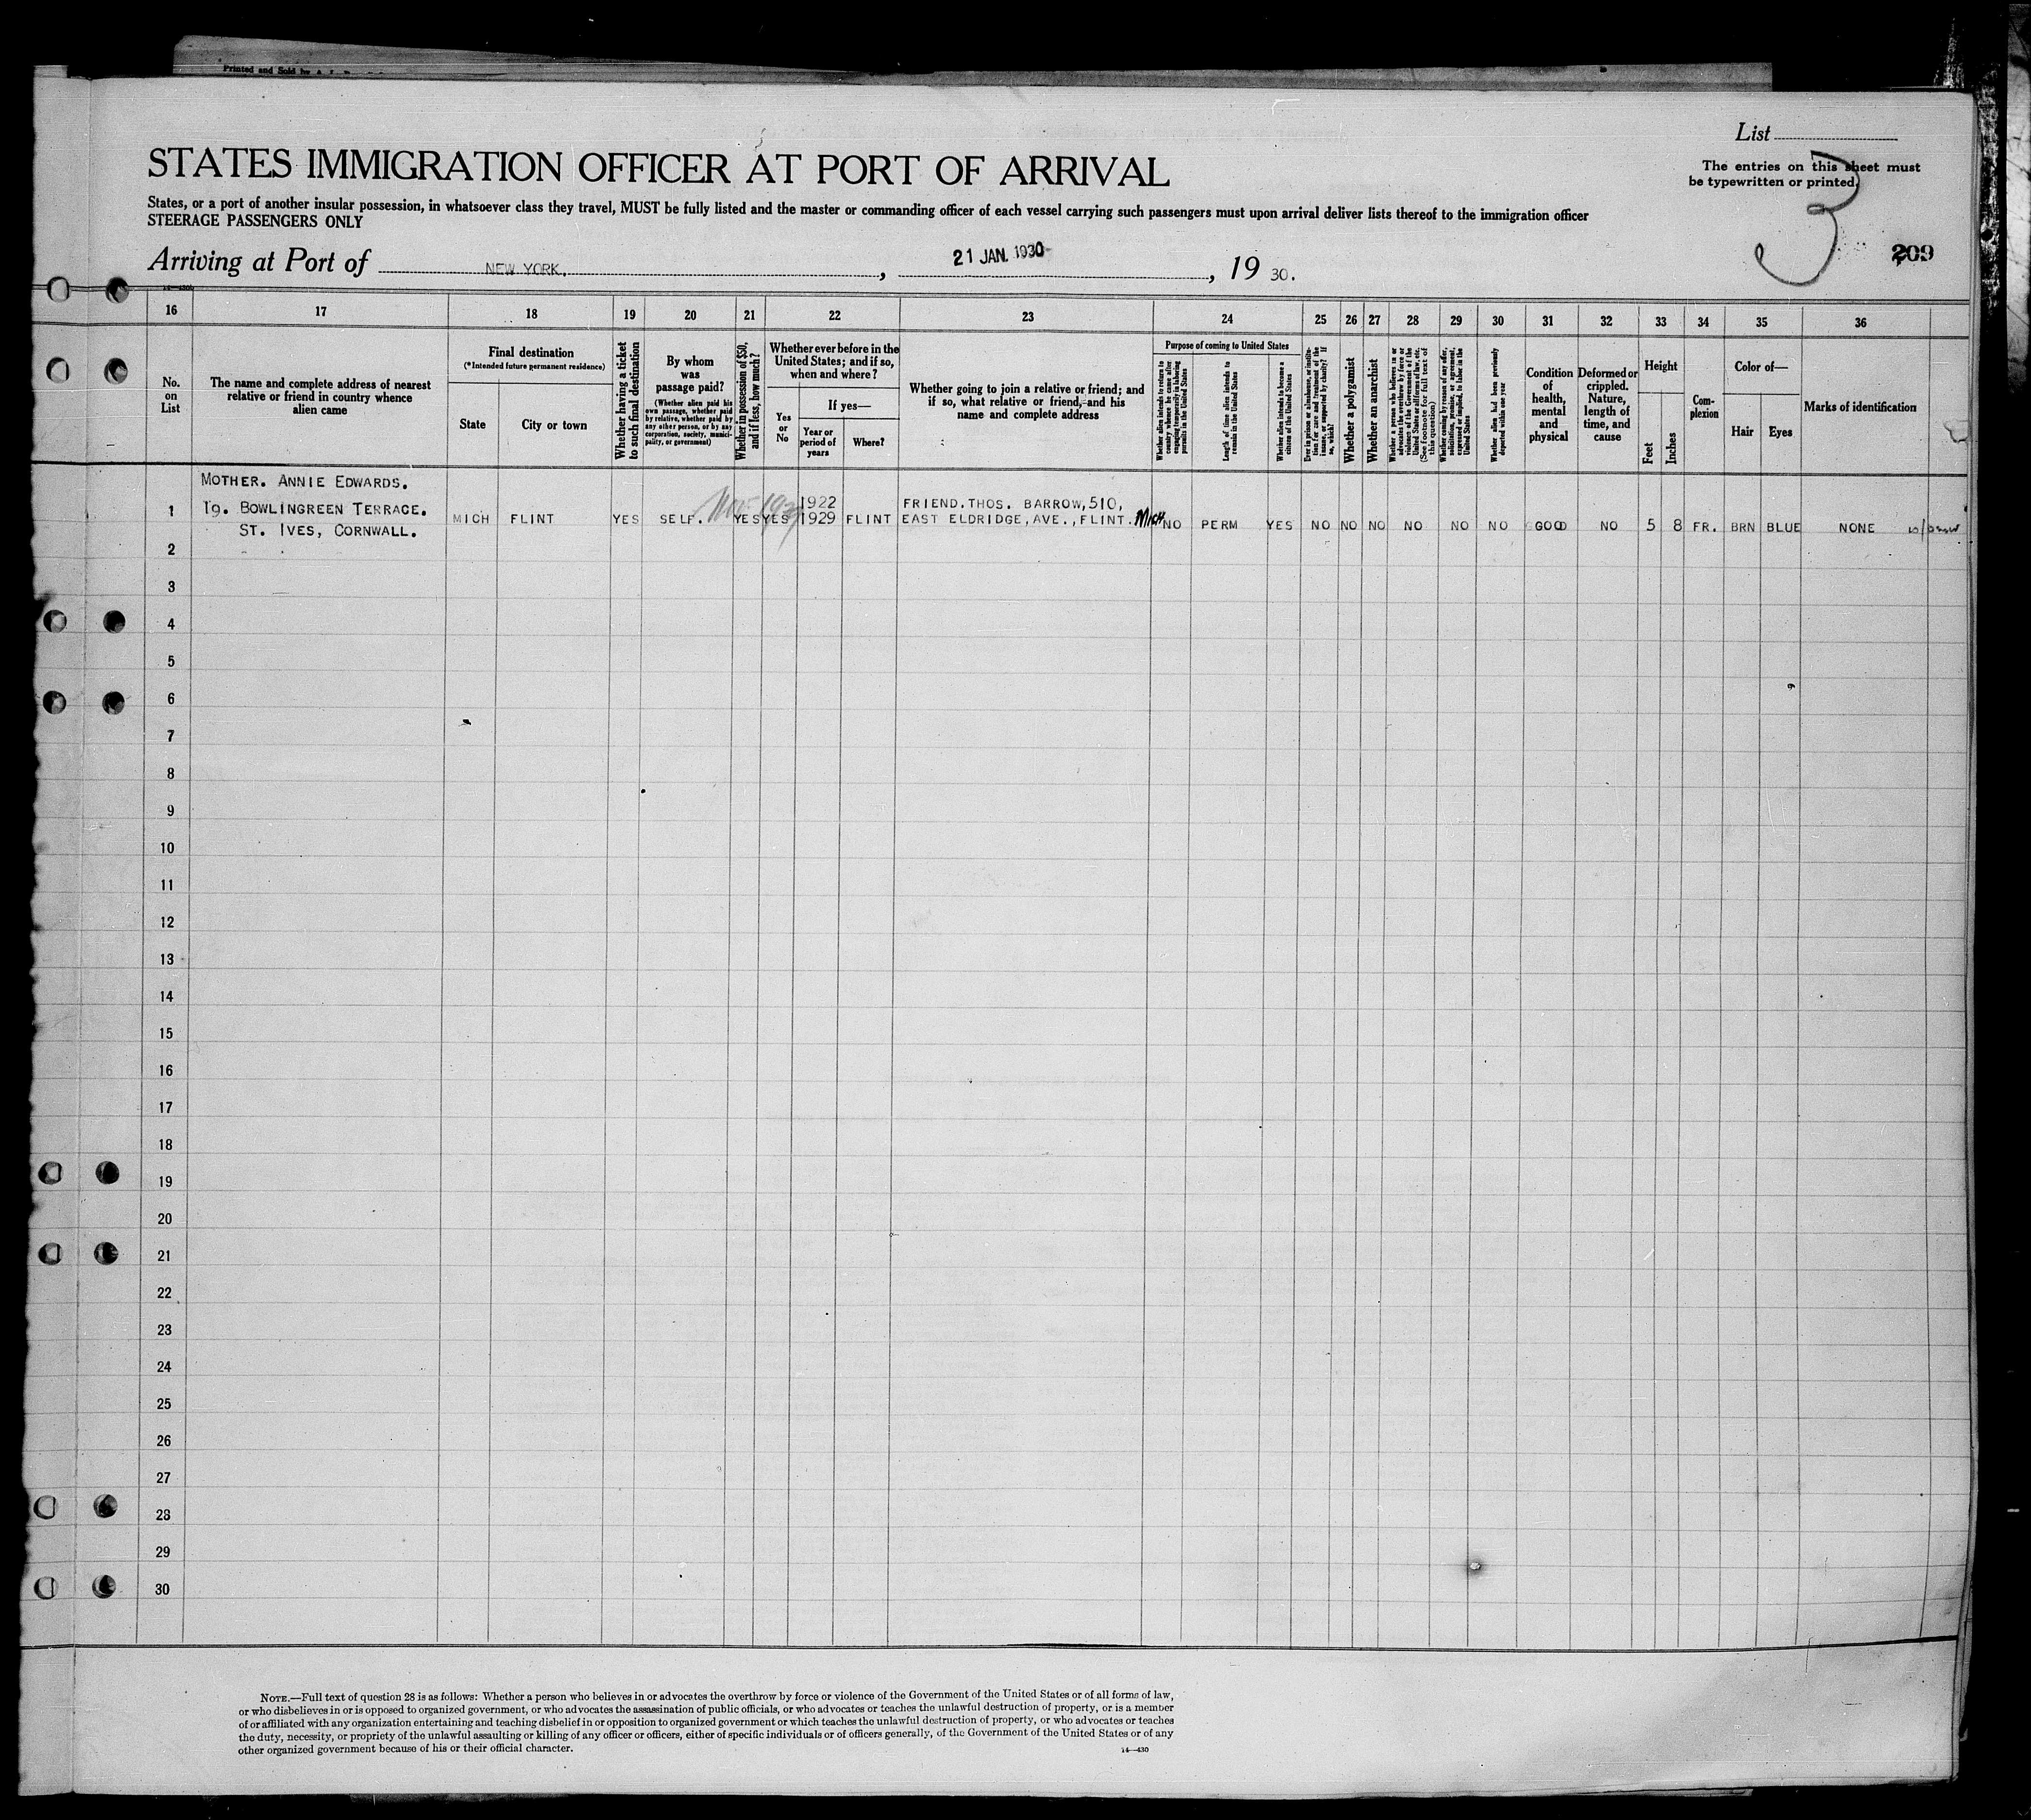 Printed and Sold by
List
STATES IMMIGRATION OFFICER AT PORT OF ARRIVAL
The entries on this sheet must
be typewritten or printed.
3
States, or a port of another insular possession, in whatsoever class they travel, MUST be fully listed and the master or commanding officer of each vessel carrying such passengers must upon arrival deliver lists thereof to the immigration officer
STEERAGE PASSENGERS ONLY
Arriving at Port of NEW YORK, , 21 JAN. 1930 , 19 30.
209
16 17 18 19 20 21 22 23 24 25 26 27 28 29 30 31 32 33 34 35 36
No. on List
The name and complete address of nearest
relative or friend in country whence
alien came
Final destination
(*Intended future permanent residence)
State
City or town
Whether having a ticket
to such final destination
By whom
was
passage paid?
(Whether alien paid his
own passage, whether paid
by relative, whether paid by
any other person, or by any
corporation, society, munici-
pality, or government)
Whether in possession of $50,
and if less, how much?
Whether ever before in the
United States; and if so,
when and where?
Yes
or
No
If yes—
Year or
period of
years
Where?
Whether going to join a relative or friend; and
if so, what relative or friend, and his
name and complete address
Purpose of coming to United States
Whether alien intends to return to
country whence he came after
engaging temporarily in laboring
pursuits in the United States
Length of time alien intends to
remain in the United States
Whether alien intends to become a
citizen of the United States
Ever in prison or almshouse, or institu-
tion for care and treatment of the
insane, or supported by charity? If
so, which?
Whether a polygamist
Whether an anarchist
Whether a person who believes in or
advocates the overthrow by force or
violence of the Government of the
United States or all forms of law, etc.
(See footnote for full text of
this question)
Whether coming by reason of any offer,
solicitation, promise, or agreement,
expressed or implied, to labor in the
United States
Whether alien had been previously
deported within one year
Condition
of
health,
mental
and
physical
Deformed or
crippled.
Nature,
length of
time, and
cause
Height
Feet
Inches
Com-
plexion
Color of—
Hair
Eyes
Marks of identification
MOTHER. ANNIE EDWARDS.
1 19. BOWLINGREEN TERRACE.
ST. IVES, CORNWALL.
MICH FLINT YES SELF. YES YES 1922
1929 FLINT FRIEND. THOS. BARROW, 510,
EAST ELDRIDGE, AVE., FLINT. MICH NO PERM YES NO NO NO NO NO NO GOOD NO 5 8 FR. BRN BLUE NONE
2
3
4
5
6
7
8
9
10
11
12
13
14
15
16
17
18
19
20
21
22
23
24
25
26
27
28
29
30
NOTE.—Full text of question 28 is as follows: Whether a person who believes in or advocates the overthrow by force or violence of the Government of the United States or of all forms of law,
or who disbelieves in or is opposed to organized government, or who advocates the assassination of public officials, or who advocates or teaches the unlawful destruction of property, or is a member
of or affiliated with any organization entertaining and teaching disbelief in or opposition to organized government or which teaches the unlawful destruction of property, or who advocates or teaches
the duty, necessity, or propriety of the unlawful assaulting or killing of any officer or officers, either of specific individuals or of officers generally, of the Government of the United States or of any
other organized government because of his or their official character.
14—430